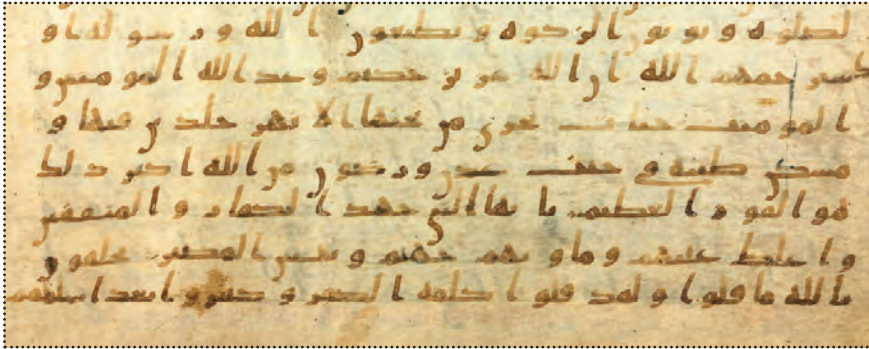 لصلوة ويوتون الزكوة ويطيعون الله ورسوله او
لئك سيرحمهم الله ان الله عزيز حكيم وعد الله المومنين و
المومنت جنات تجري من تحتها الانهر خلدين فيها و
مسكن طيبة في جنت عدن ورضون من الله اكبر ذلك
هو الفوز العظيم يايها النبي جهد الكفار والمنفقين
واغلظ عليهم وماويهم جهنم وبيس المصير يحلفون
بالله ما قلوا ولقد قلوا كلمة الكفر وكفروا بعد اسلمهم